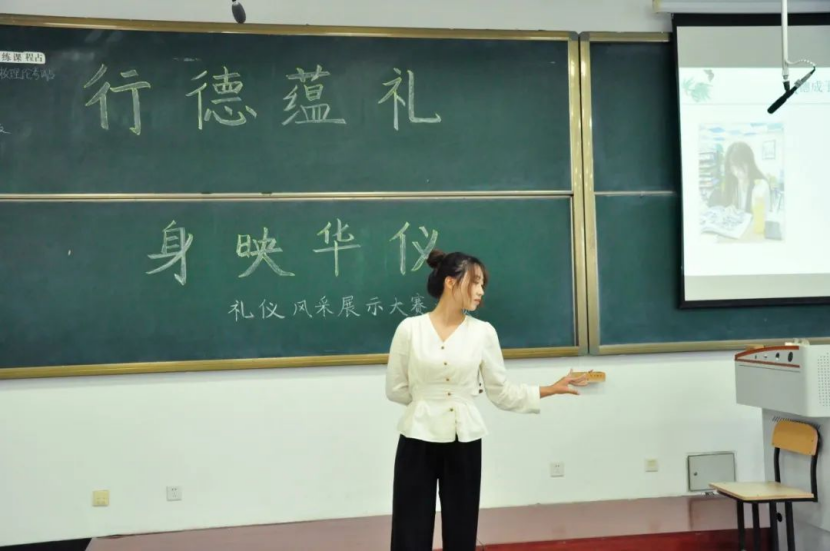 练课程占
行德蕴礼
身映华仪
礼仪风采展示大赛